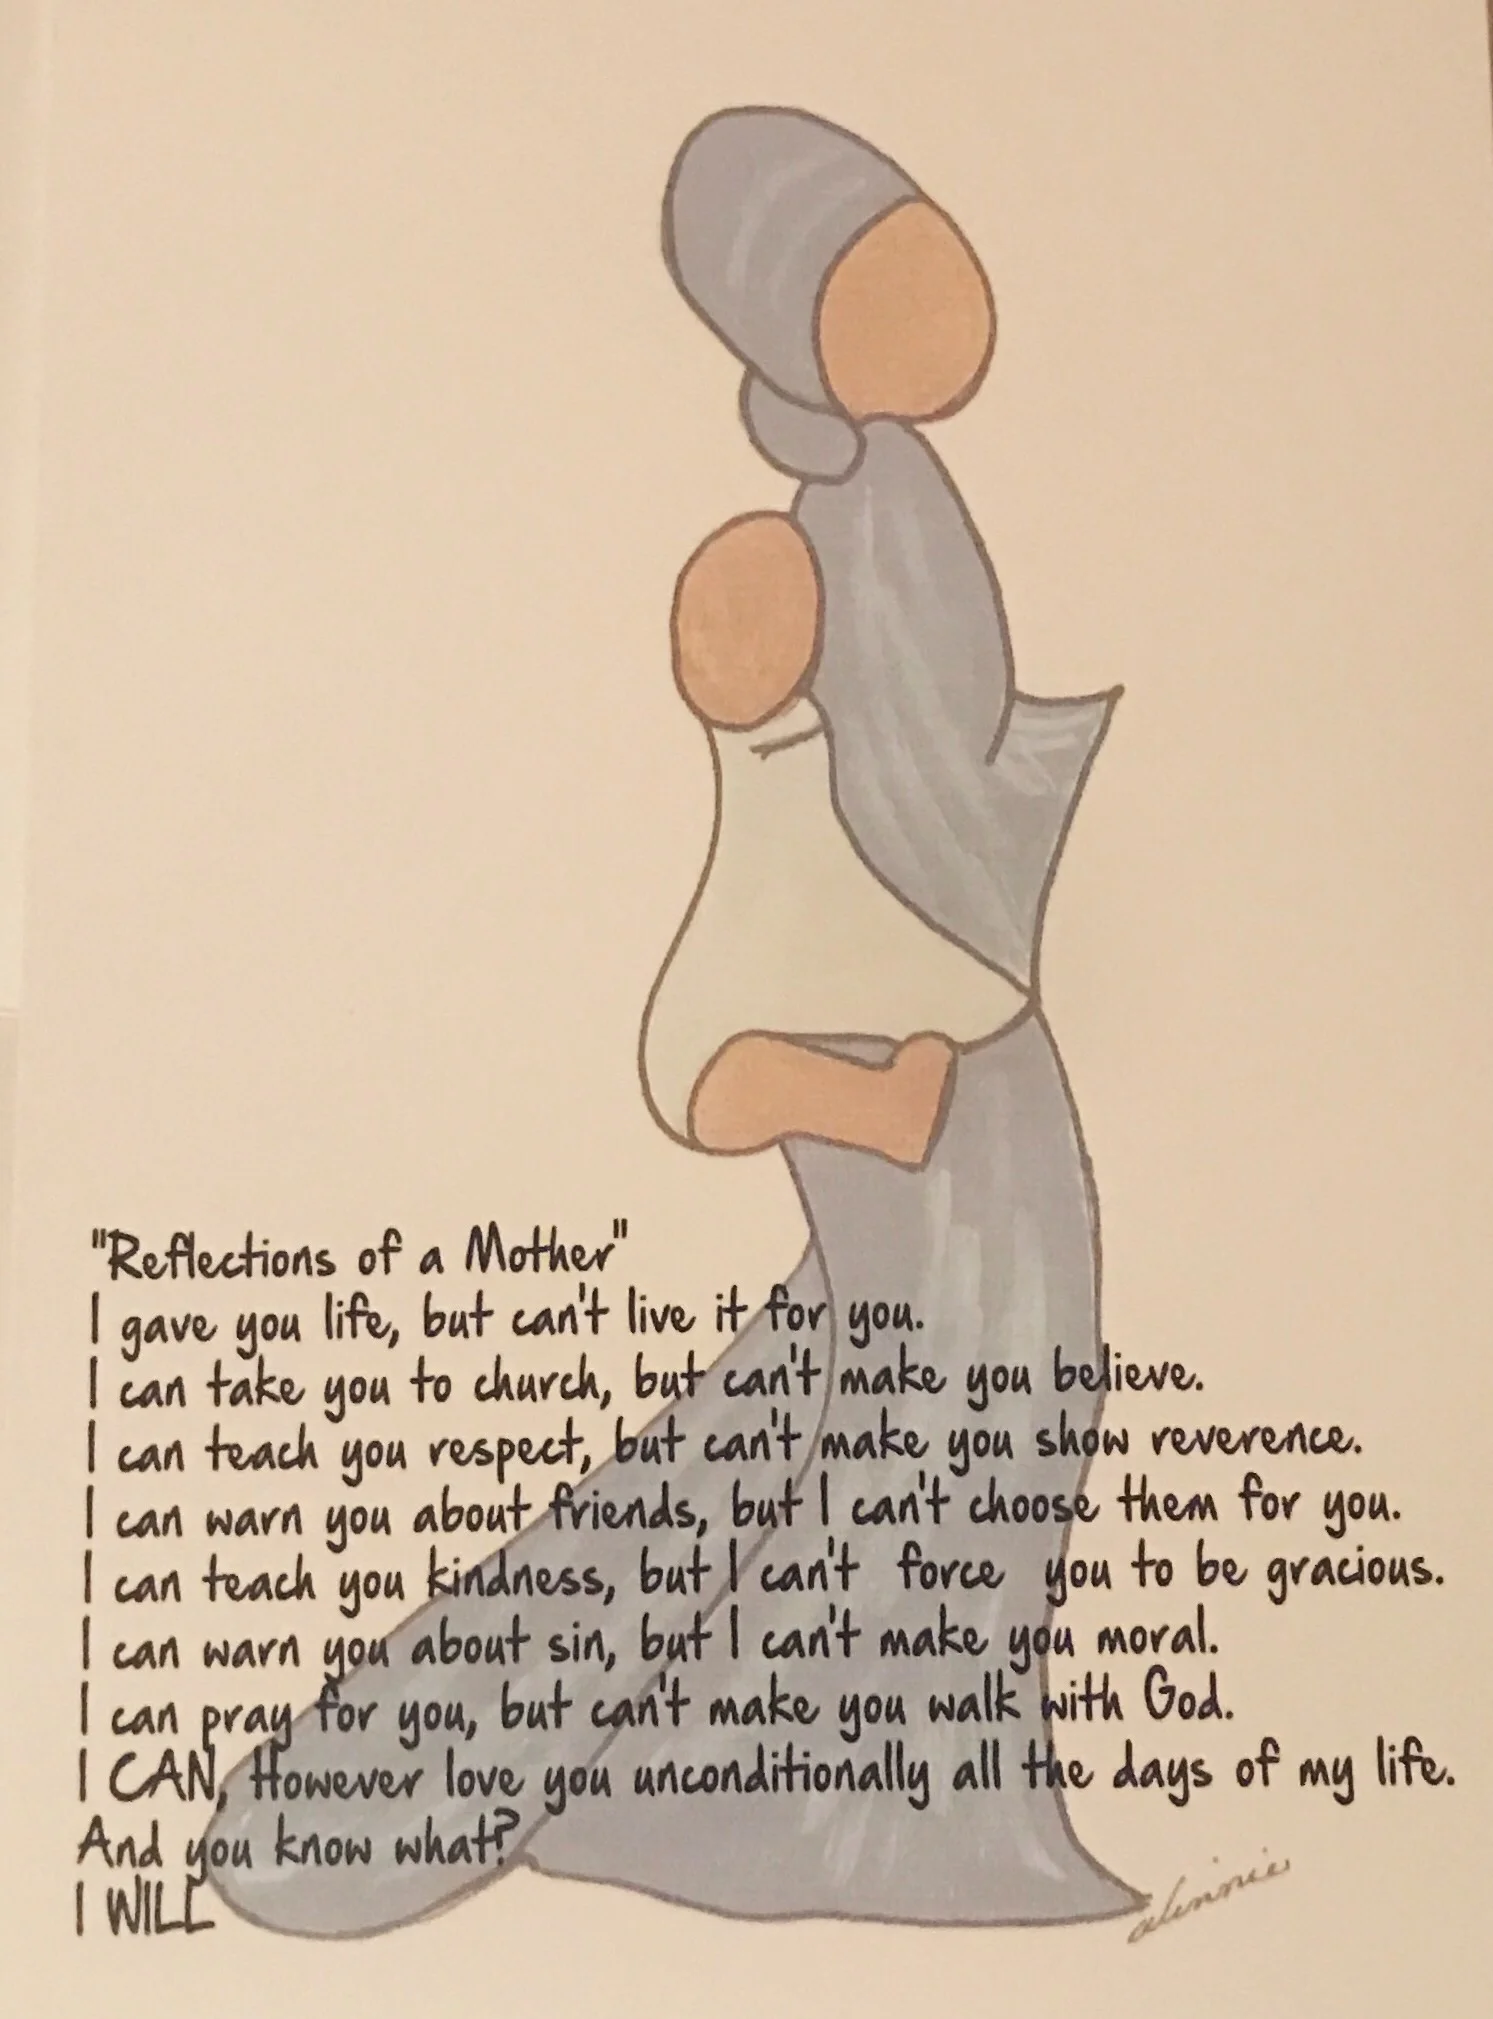 "Reflections of a Mother"
I gave you life, but can't live it for you.
I can take you to church, but can't make you believe.
I can teach you respect, but can't make you show reverence.
I can warn you about friends, but I can't choose them for you.
I can teach you kindness, but I can't force you to be gracious.
I can warn you about sin, but I can't make you moral.
I can pray for you, but can't make you walk with God.
I CAN, However love you unconditionally all the days of my life.
And you know what?
I WILL